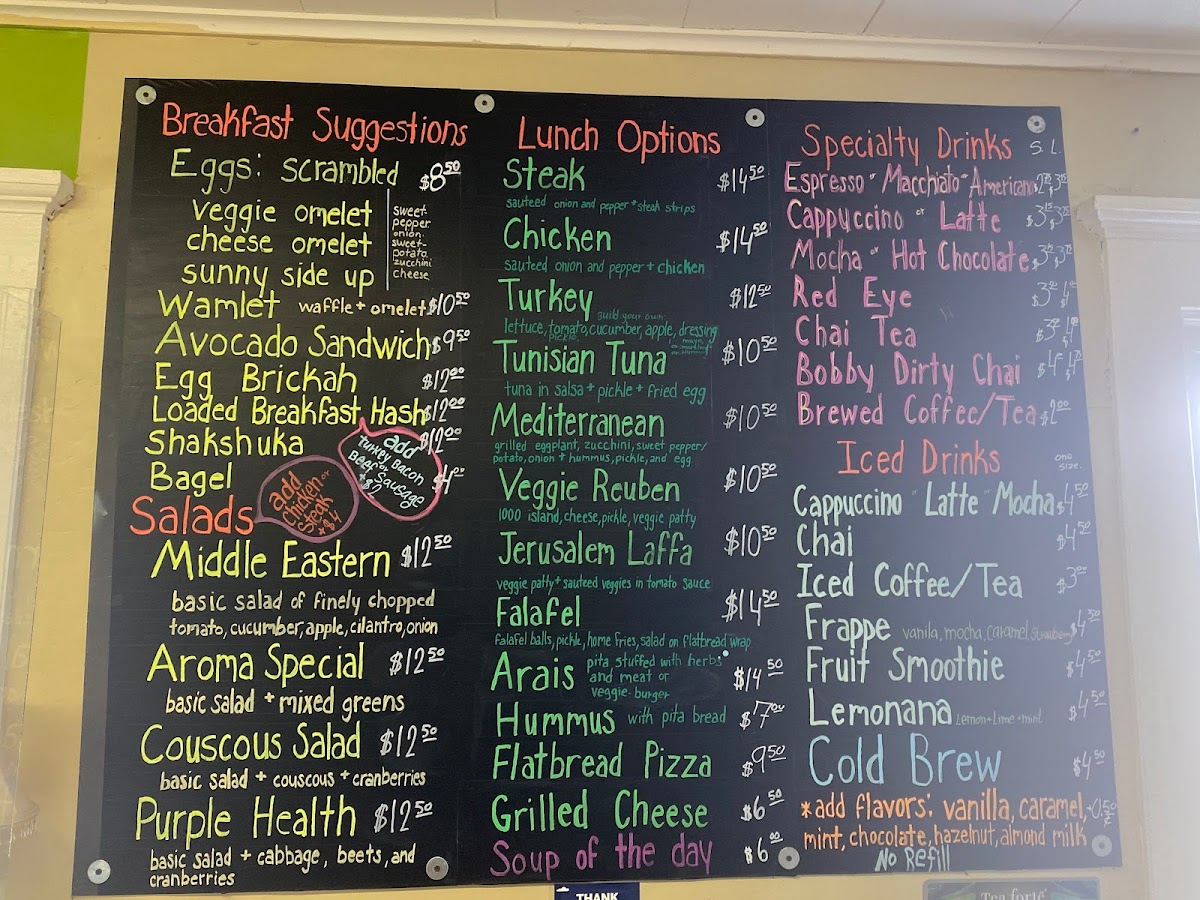 Breakfast Suggestions
Eggs: scrambled $8.50
veggie omelet
cheese omelet
sunny side up
sweet-
pepper
onion
sweet-
potato
zucchini
cheese
Wamlet waffle + omelet $10.50
Avocado Sandwich $9.50
Egg Brickah $12.00
Loaded Breakfast Hash $12.00
Shakshuka $12.00
Bagel $4.00
add
Turkey Bacon
or
Beef Sausage
+$2
Salads
add
Chicken or
Steak
+$4
Middle Eastern $12.50
basic salad of finely chopped
tomato, cucumber, apple, cilantro, onion
Aroma Special $12.50
basic salad + mixed greens
Couscous Salad $12.50
basic salad + couscous + cranberries
Purple Health $12.50
basic salad + cabbage, beets, and
cranberries
Lunch Options
Steak $14.50
sauteed onion and pepper + steak strips
Chicken $14.50
sauteed onion and pepper + chicken
Turkey $12.50
Build your own:
lettuce, tomato, cucumber, apple, dressing
pickle,
Tunisian Tuna $10.50
tuna in salsa + pickle + fried egg
Mediterranean $10.50
grilled eggplant, zucchini, sweet pepper/
potato, onion + hummus, pickle, and egg
Veggie Reuben $10.50
1000 island, cheese, pickle, veggie patty
Jerusalem Laffa $10.50
veggie patty + sauteed veggies in tomato sauce
Falafel $14.50
falafel balls, pickle, home fries, salad on flatbread wrap
Arais $14.50
pita stuffed with herbs
and meat or
veggie-burger
Hummus with pita bread $7.00
Flatbread Pizza $9.50
Grilled Cheese $6.50
Soup of the day $6.00
THANK
Specialty Drinks S. L.
Espresso or Macchiato or Americano
Cappuccino or Latte
Mocha or Hot Chocolate
Red Eye
Chai Tea
Bobby Dirty Chai
Brewed Coffee/Tea $2.00
Iced Drinks one size.
Cappuccino or Latte or Mocha $4.50
Chai $4.50
Iced Coffee/Tea $3.00
Frappe vanila, mocha, caramel $4.50
Fruit Smoothie $4.50
Lemonana Lemon + Lime + mint $4.50
Cold Brew $4.50
*add flavors: vanilla, caramel, +0.50
mint, chocolate, hazelnut, almond milk
No Refill
Tea forté